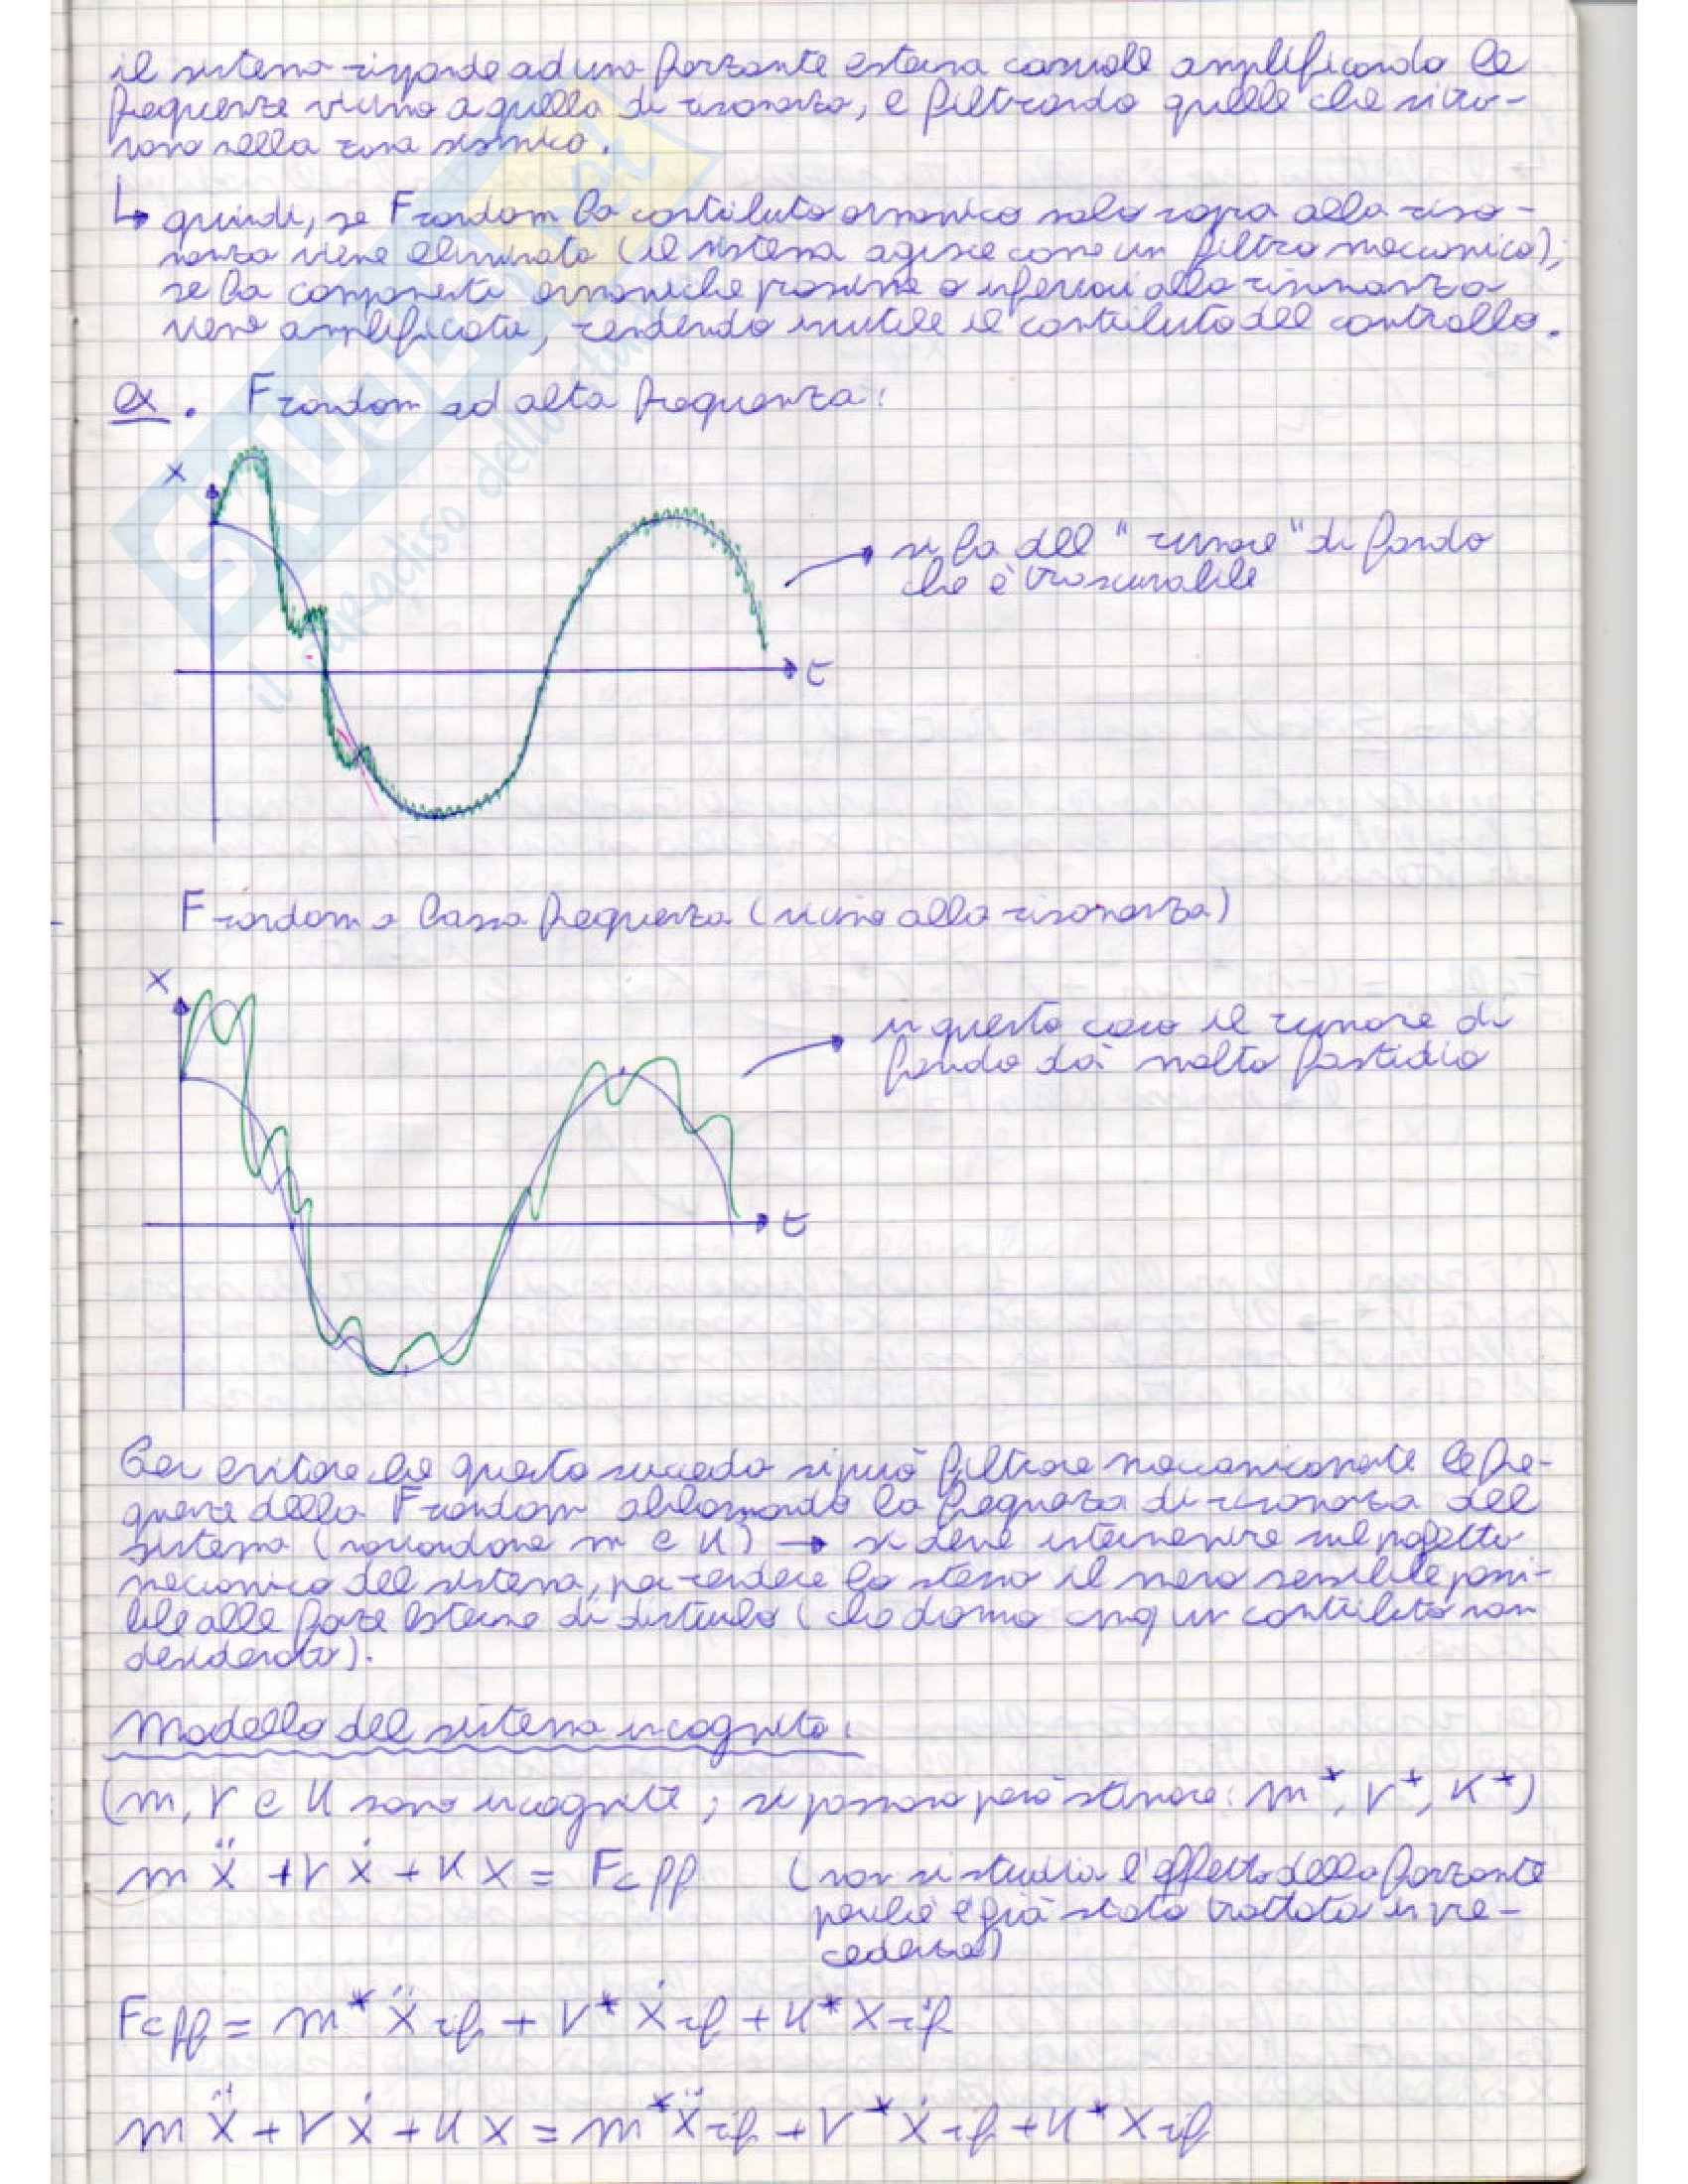 il sistema risponde ad una forzante esterna casuale amplificando le
frequenze vicino a quella di risonanza, e filtrando quelle che si tro-
vano nella zona sismica.
↳ quindi, se Frandom ha contributo armonico solo sopra alla riso-
nanza viene eliminato (il sistema agisce come un filtro meccanico);
se ha componenti armoniche prossime o inferiori alla risonanza
viene amplificata, rendendo inutile il contributo del controllo.
ex. Frandom ad alta frequenza:
x
si ha del "rumore" di fondo
che è trascurabile
t
Frandom a bassa frequenza (vicino alla risonanza)
x
in questo caso il rumore di
fondo dà molto fastidio
t
Per evitare che questo succeda si può filtrare meccanicamente le fre-
quenze della Frandom abbassando la frequenza di risonanza del
sistema (variandone m e k) → si deve intervenire sul progetto
meccanico del sistema, per rendere lo stesso il meno sensibile possi-
bile alle forze esterne di disturbo (che danno cmq un contributo non
desiderato).
Modello del sistema incognito:
(m, r e k sono incognite; si possono però stimare: m*, r*, k*)
m ẍ + r ẋ + k x = Fcff (non si studia l'effetto della forzante
perchè è già stato trattato in pre-
cedenza)
Fcff = m* ẍrif + r* ẋrif + k* xrif
m ẍ + r ẋ + k x = m* ẍrif + r* ẋrif + k* xrif
SKUOLA.net
il paradiso dello studente